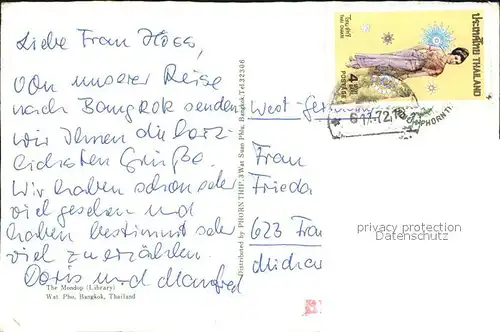 Liebe Frau Höss,
von unserer Reise
nach Bangkok senden
wir Ihnen die herz-
lichsten Grüße.
Wir haben schon sehr
viel gesehen und
haben bestimmt sehr
viel zu erzählen.
Doris und Manfred
The Mondop (Library)
Wat Pho, Bangkok, Thailand
Distributed by PHORN THIP, 3 Wat Suan Phlu, Bangkok. Tel. 32306
ประเทศไทย THAILAND
THAI DANCE
4 BAHT
POSTAGE
6.11.72
West-
Frau
Frieda
623 Fra
privacy protection
Datenschutz